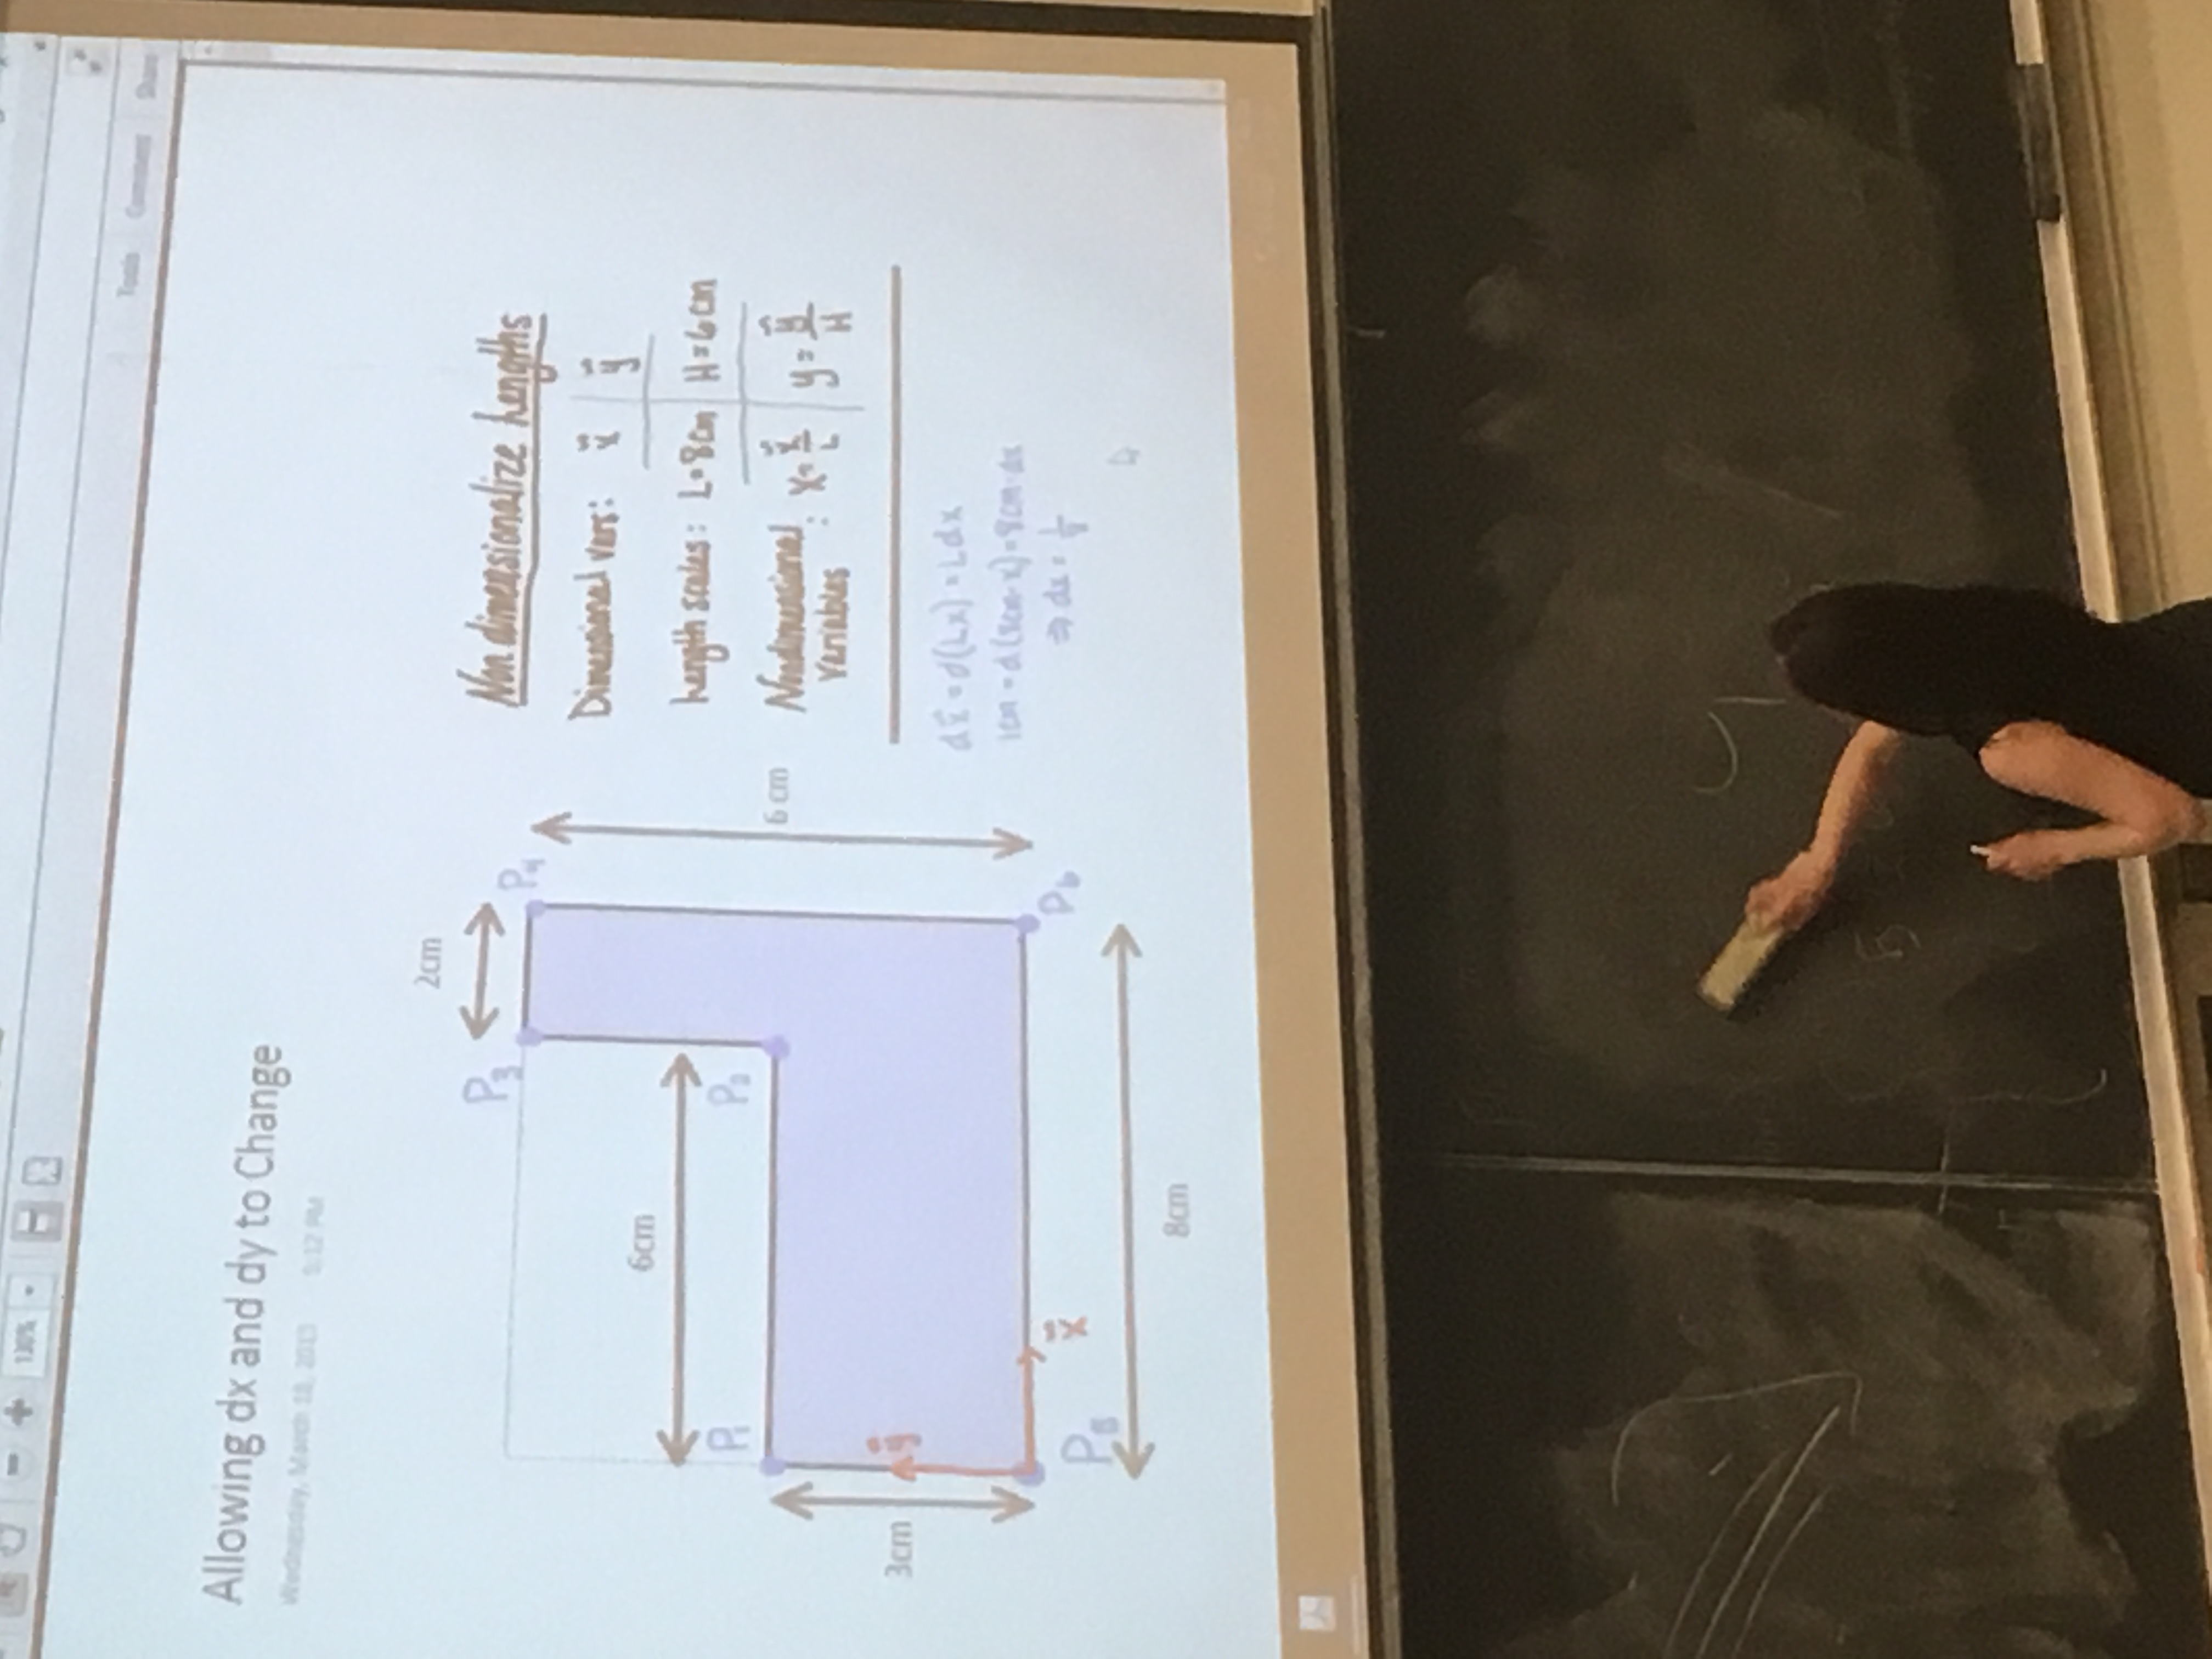 130%
Tools Comment Share
Allowing dx and dy to Change
Wednesday, March 18, 2015 5:12 PM
2cm
P₃
P₄
6cm
P₁
P₂
6 cm
3cm
ỹ
x̃
P₅
P₆
8cm
Nondimensionalize Lengths
Dimensional vars: x̃ ỹ
Length scales: L=8cm H=6cm
Nondimensional : x=x̃/L y=ỹ/H
Variables
dx̃ = d(Lx) = Ldx
1cm = d(8cm·x) = 8cm·dx
⇒ dx = 1/8
5